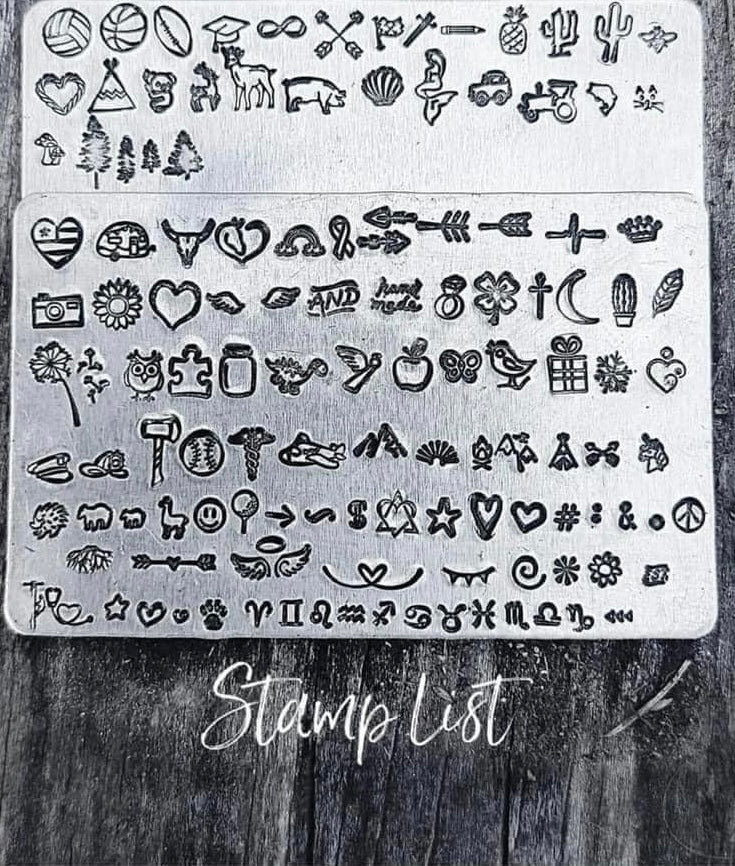 AND hand
made
$ # : & .
Stamp List